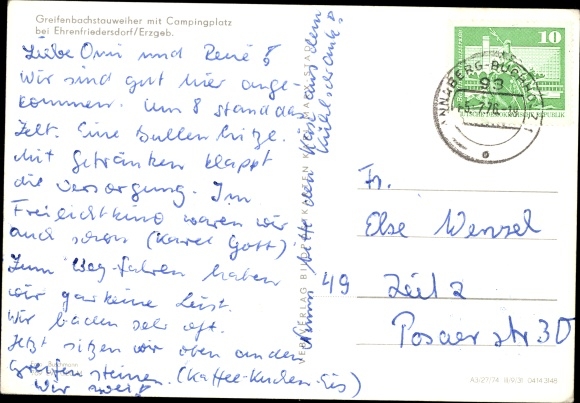 Greifenbachstauweiher mit Campingplatz
bei Ehrenfriedersdorf/Erzgeb.
Liebe Omi und René!
Wir sind gut hier ange-
kommen. Um 8 stand das
Zelt. Eine Bullenhitze.
Mit Getränken klappt
die Versorgung. Im
Freilichtkino waren wir
auch schon (Karel Gott)
Zum Weg-fahren haben
wir gar keine Lust.
Wir baden sehr oft.
Jetzt sitzen wir oben an den
Greifensteinen. (Kaffee-Kuchen-Eis)
Wir
Nimm bitte den Käse aus dem
Kühlschrank!
10
ANNABERG-BUCHHOLZ 1
93
DEUTSCHE DEMOKRATISCHE REPUBLIK
Fr.
Else Wenzel
49 Zeitz
Posaer str 30
A3/27/74 III/9/31 0414 3148